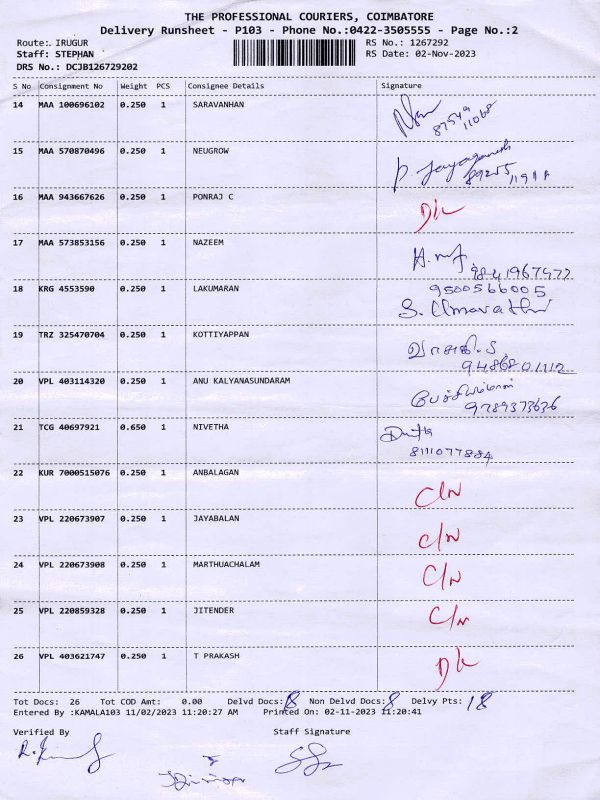 THE PROFESSIONAL COURIERS, COIMBATORE
Delivery Runsheet - P103 - Phone No.:0422-3505555 - Page No.:2
Route: IRUGUR RS No.: 1267292
Staff: STEPHAN RS Date: 02-Nov-2023
DRS No.: DCJB126729202
S No Consignment No Weight PCS Consignee Details Signature
14 MAA 100696102 0.250 1 SARAVANHAN
87549
11068
15 MAA 570870496 0.250 1 NEUGROW P. Jayaganesh
89255
16 MAA 943667626 0.250 1 PONRAJ C D/L
17 MAA 573853156 0.250 1 NAZEEM
9841967477
18 KRG 4553590 0.250 1 LAKUMARAN 9500566005
S. Umavathi
19 TRZ 325470704 0.250 1 KOTTIYAPPAN வாசுகி.S
9486801112
20 VPL 403114320 0.250 1 ANU KALYANASUNDARAM பேச்சியம்மாள்
9789373636
21 TCG 40697921 0.650 1 NIVETHA
8111077884
22 KUR 7000515076 0.250 1 ANBALAGAN C/N
23 VPL 220673907 0.250 1 JAYABALAN C/N
24 VPL 220673908 0.250 1 MARTHUACHALAM C/N
25 VPL 220859328 0.250 1 JITENDER C/N
26 VPL 403621747 0.250 1 T PRAKASH D/L
Tot Docs: 26 Tot COD Amt: 0.00 Delvd Docs: 18 Non Delvd Docs: 8 Delvy Pts: 18
Entered By :KAMALA103 11/02/2023 11:20:27 AM Printed On: 02-11-2023 11:20:41
Verified By Staff Signature